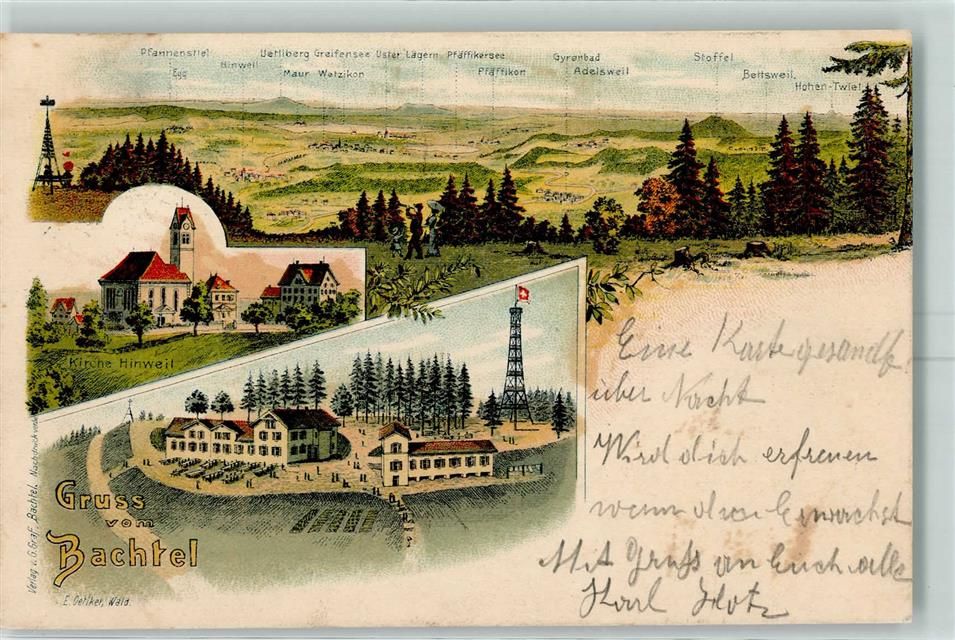 Pfannenstiel Egg Hinweil Uetliberg Greifensee Uster Lägern Pfäffikersee
Maur Wetzikon Pfäffikon Gyrenbad Adelsweil Stoffel Bettsweil Hohen-Twiel
Kirche Hinweil
Gruss
vom
Bachtel
E. Oetiker, Wald.
Verlag v. G. Graf „Bachtel". Nachdruck verb.
Eine Karte gesandt
über Nacht
Wird dich erfreuen
wenn du Erwachst
Mit Gruß an Euch alle
Karl Hotz